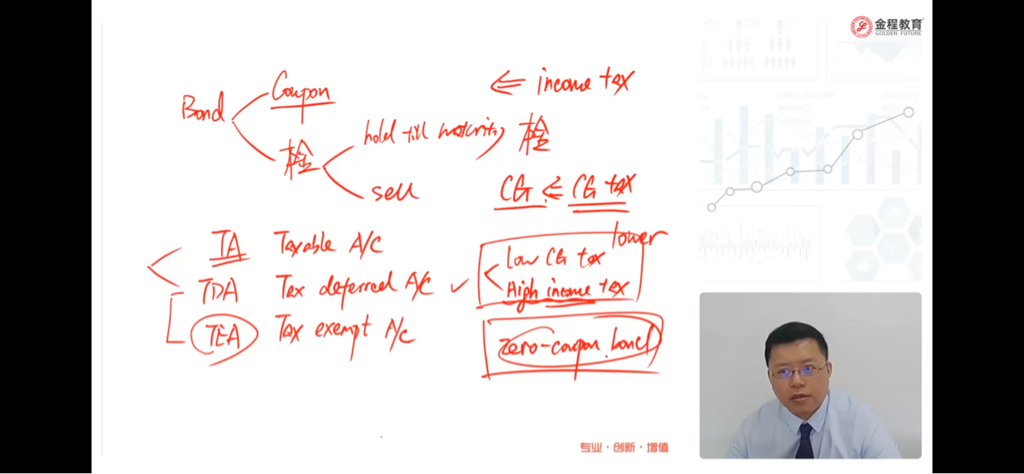 金程教育
GOLDEN FUTURE
Coupon ⇐ income tax
Bond
hold till maturity
sell CG ⇐ CG tax
lower
TA Taxable A/C low CG tax
TDA Tax deferred A/C ✓ High income tax
TEA Tax exempt A/C zero-coupon bond
专业·创新·增值